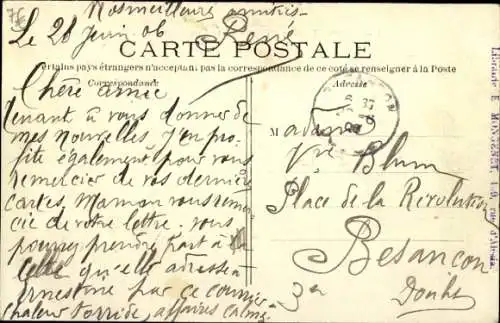 Nos meilleures amitiés
René
Le 28 Juin 06
CARTE POSTALE
Certains pays étrangers n'acceptant pas la correspondance de ce coté se renseigner à la Poste
Correspondance
Adresse
Chère amie
Tenant à vous donner de
mes nouvelles, j'en pro-
fite également pour vous
remercier de vos dernières
cartes, Maman vous remer-
cie de votre lettre. Vous
pourrez prendre part à
celle qu'elle adresse à
Ernestine par ce courrier
chaleur torride, affaires calmes
Madame
Blum
Place de la Révolution
Besançon
Doubs
Librairie E.